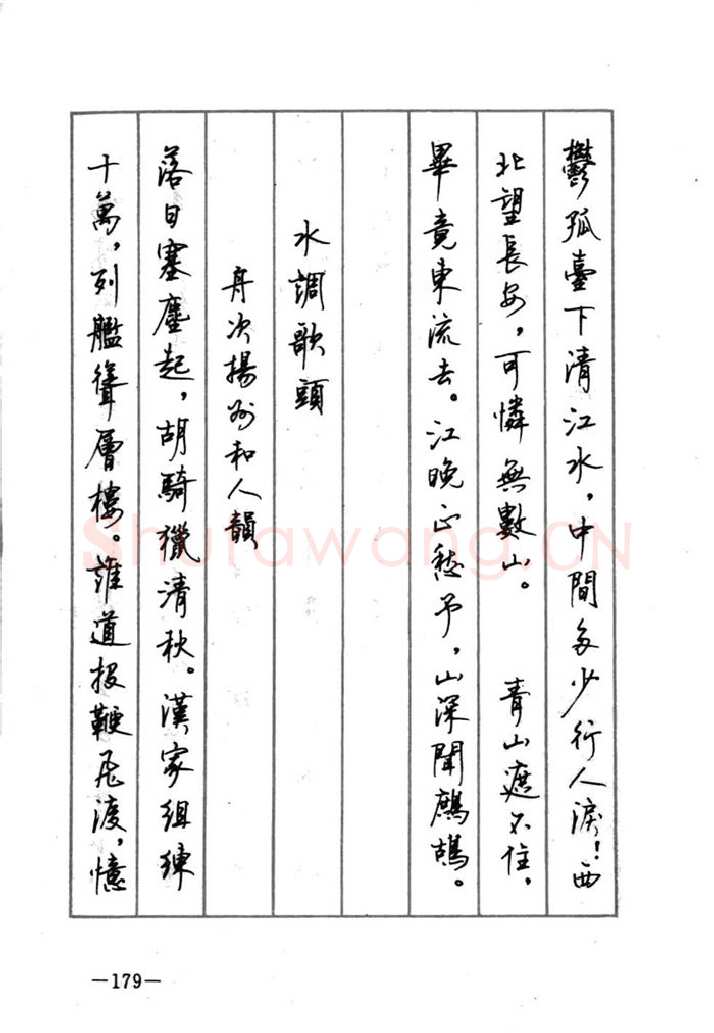 鬱孤臺下清江水，中間多少行人淚！西
北望長安，可憐無數山。　青山遮不住，
畢竟東流去。江晚正愁予，山深聞鷓鴣。
水調歌頭
舟次揚州和人韻
落日塞塵起，胡騎獵清秋。漢家組練
十萬，列艦聳層樓。誰道投鞭飛渡，憶
—179—
Shufawang.CN